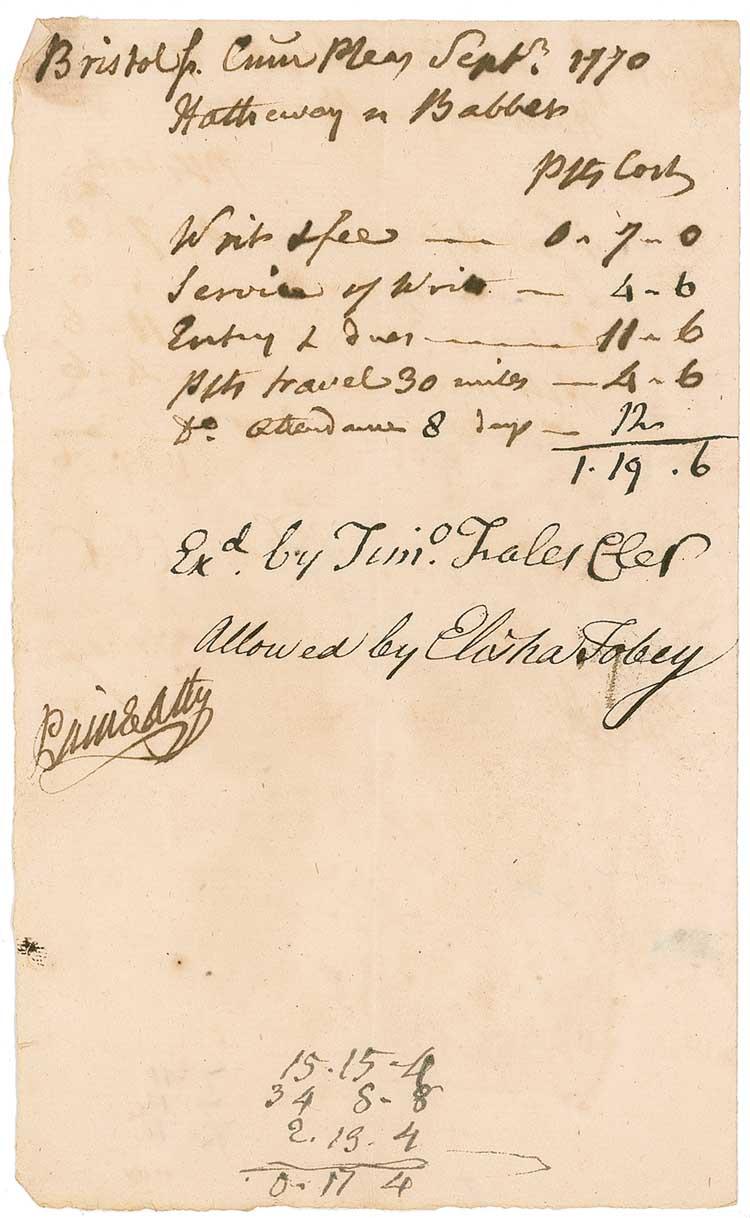 Bristol ss. Com̄ Pleas Septr. 1770
Hatheway vs Babbet
Plts Cost
Writ & fee — 0 - 7 - 0
Service of Writ — 4 - 6
Entry & dues — 11 - 6
Plts travel 30 miles — 4 - 6
Do. attendance 8 days — 12
1 . 19 . 6
Exd. by Timo. Fales Cler
Allowed by Elisha Tobey
Paine Atty
15 . 15 - 4
34 8 - 8
2 . 13 . 4
0 . 17 4